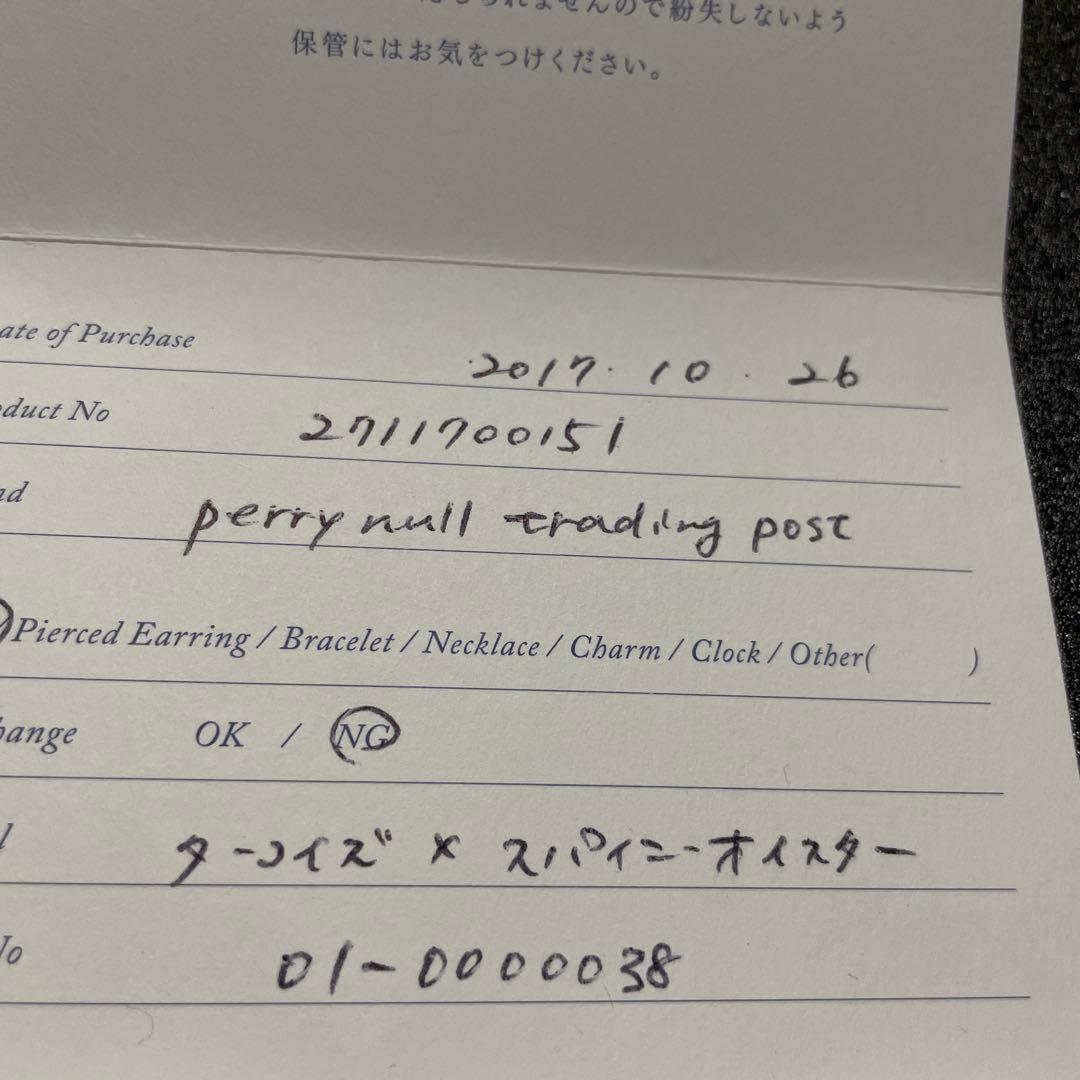 られませんので紛失しないよう
保管にはお気をつけください。
ate of Purchase 2017. 10. 26
duct No 2711700151
nd perry null trading post
Pierced Earring / Bracelet / Necklace / Charm / Clock / Other( )
hange OK / NG
l ターコイズ × スパイニーオイスター
No 01-0000038